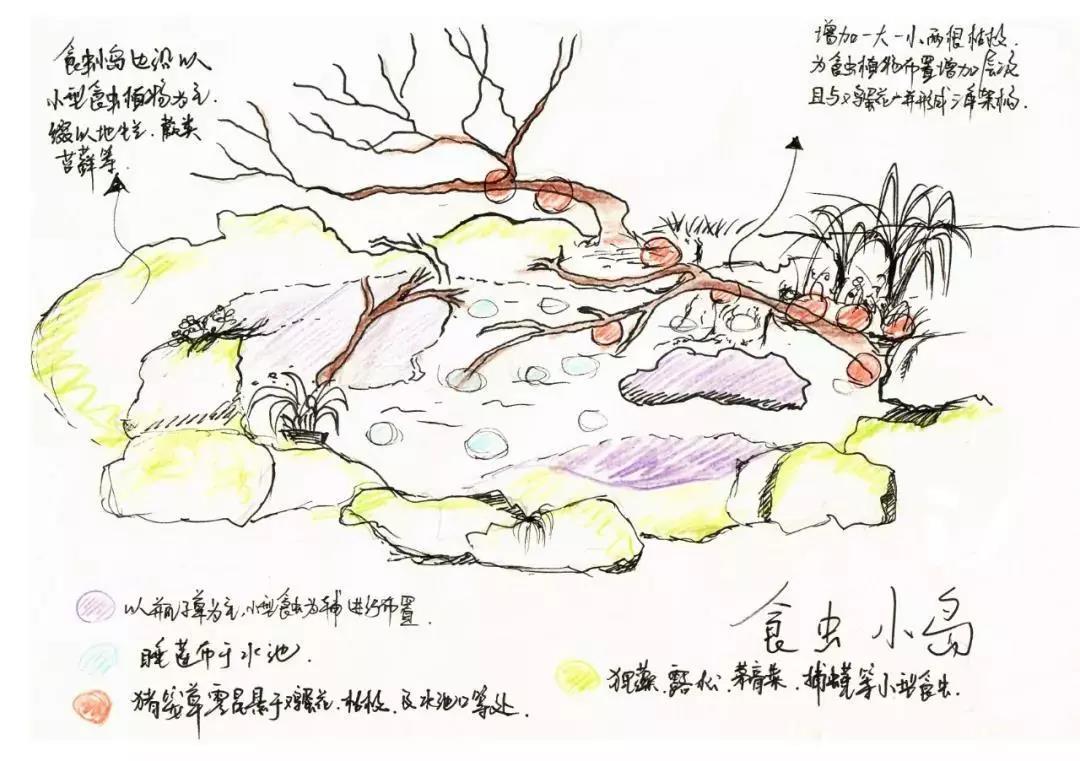 食虫小岛边沿以
小型食虫植物为主.
缀以地生兰.蕨类
苔藓等.
增加一大一小两根枯枝.
为食虫植物布置增加层次
且与鸡蛋花 并形成三角架构.
以瓶子草为主.小型食虫为辅进行布置.
睡莲布于水池.
食虫小岛
狸藻.露松.茅膏菜.捕蝇等小型食虫.
猪笼草零星悬于鸡蛋花.枯枝.及水池口等处.